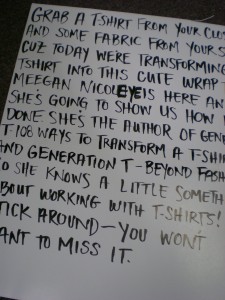 GRAB A T-SHIRT FROM YOUR CLO
AND SOME FABRIC FROM YOUR S
CUZ TODAY WERE TRANSFORMING
TSHIRT INTO THIS CUTE WRAP
MEEGAN NICOLE IS HERE AN
SHE'S GOING TO SHOW US HOW I
DONE SHE'S THE AUTHOR OF GENE
T-108 WAYS TO TRANSFORM A T-SHI
AND GENERATION T-BEYOND FASH
SO SHE KNOWS A LITTLE SOMETH
ABOUT WORKING WITH T-SHIRTS!
TICK AROUND-YOU WON'T
ANT TO MISS IT.